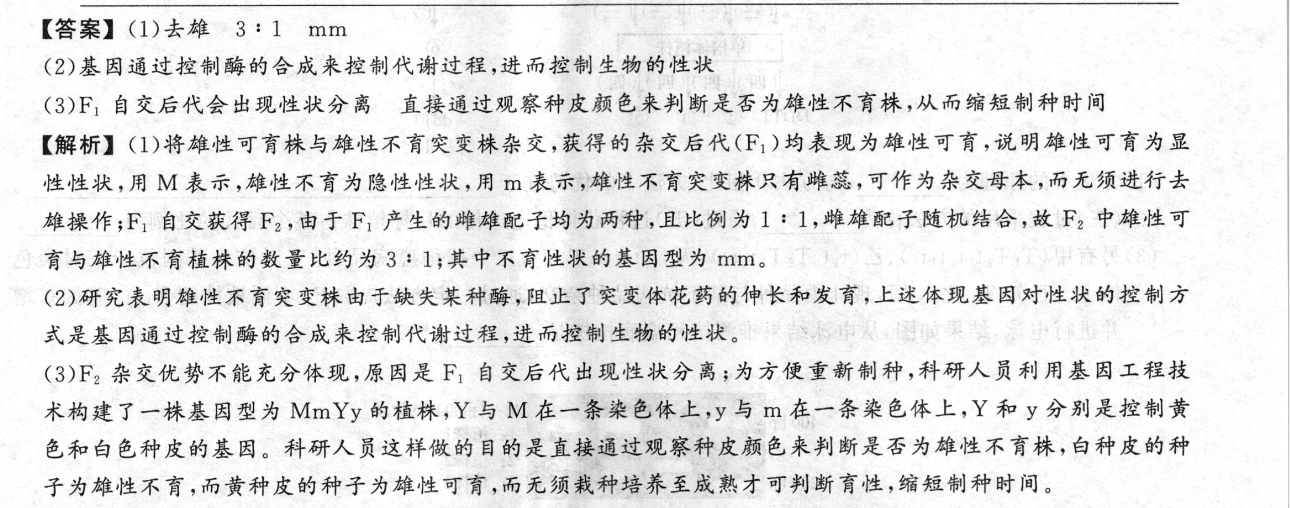 【答案】(1)去雄 3∶1 mm
(2)基因通过控制酶的合成来控制代谢过程,进而控制生物的性状
(3)F₁ 自交后代会出现性状分离 直接通过观察种皮颜色来判断是否为雄性不育株,从而缩短制种时间
【解析】(1)将雄性可育株与雄性不育突变株杂交,获得的杂交后代(F₁)均表现为雄性可育,说明雄性可育为显
性性状,用 M 表示,雄性不育为隐性性状,用 m 表示,雄性不育突变株只有雌蕊,可作为杂交母本,而无须进行去
雄操作;F₁ 自交获得 F₂,由于 F₁ 产生的雌雄配子均为两种,且比例为 1∶1,雌雄配子随机结合,故 F₂ 中雄性可
育与雄性不育植株的数量比约为 3∶1;其中不育性状的基因型为 mm。
(2)研究表明雄性不育突变株由于缺失某种酶,阻止了突变体花药的伸长和发育,上述体现基因对性状的控制方
式是基因通过控制酶的合成来控制代谢过程,进而控制生物的性状。
(3)F₂ 杂交优势不能充分体现,原因是 F₁ 自交后代出现性状分离;为方便重新制种,科研人员利用基因工程技
术构建了一株基因型为 MmYy 的植株,Y 与 M 在一条染色体上,y 与 m 在一条染色体上,Y 和 y 分别是控制黄
色和白色种皮的基因。科研人员这样做的目的是直接通过观察种皮颜色来判断是否为雄性不育株,白种皮的种
子为雄性不育,而黄种皮的种子为雄性可育,而无须栽种培养至成熟才可判断育性,缩短制种时间。